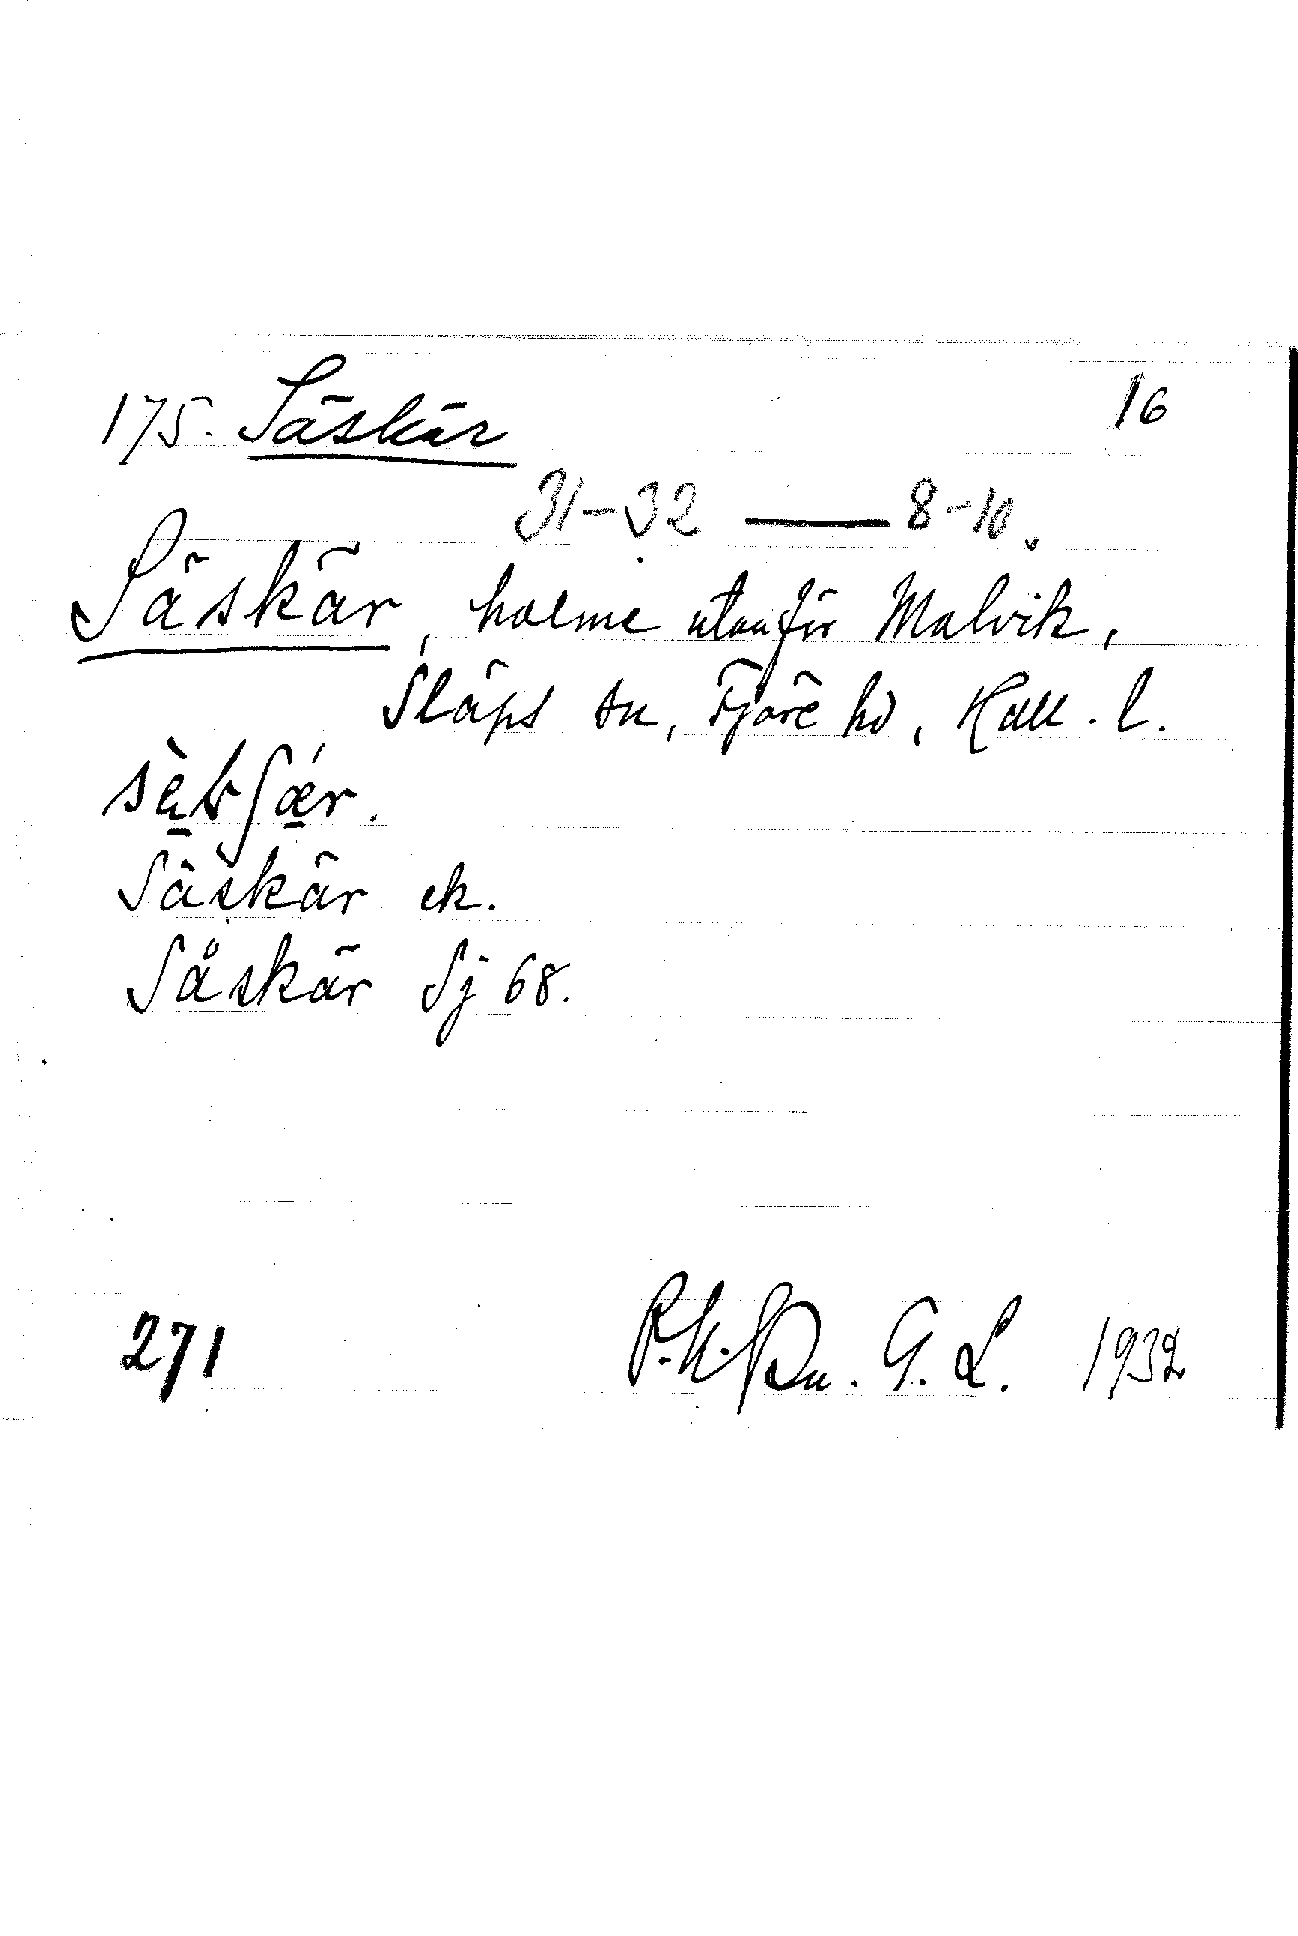 175. Säskär 16
31-32 — 8-10.
Säskär, holme utanför Malvik,
Släps sn, Fjäre hd, Hall. l.
Säskär ek.
Såskär Sj 68.
271 G. L. 1932